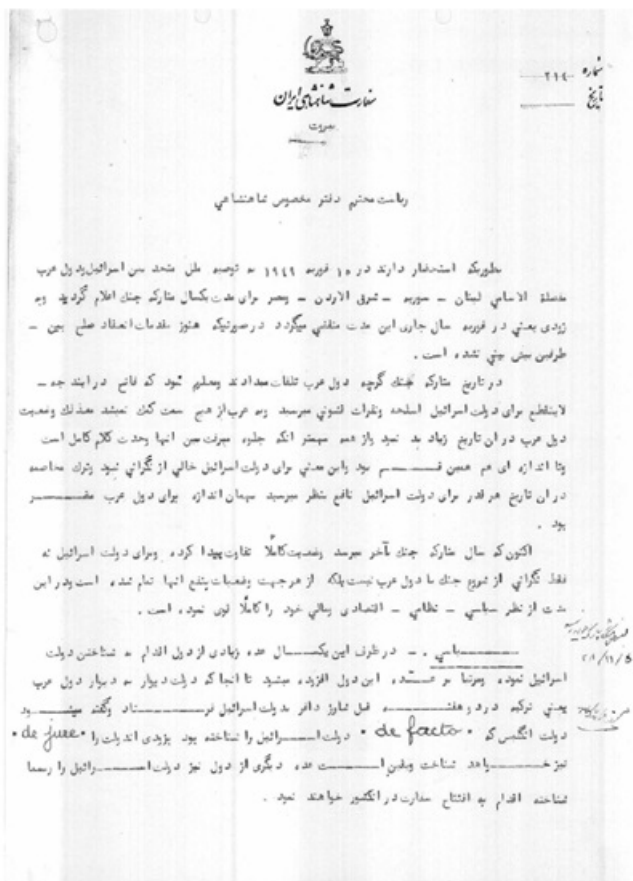 شماره ٢١٤
تاریخ
سفارت شاهنشاهی ایران
بیروت
ریاست محترم دفتر مخصوص شاهنشاهی
بطوریکه استحضار دارند در ١٠ فوریه ١٩٤٩ به توصیه ملل متحد بین اسرائیل و دول عرب
لبنان ــ سوریه ــ شرق الاردن ــ ومصر برای مدت یکسال متارکه جنگ اعلام گردید وبه
زودی یعنی در فوریه سال جاری این مدت منقضی میگردد درصورتیکه هنوز مقدمات انعقاد صلح بین ــ
طرفین پیش بینی نشده است .
در تاریخ متارکه جنگ گرچه دول عرب تلفات میدادند ومعلوم نبود که فاتح در اینده جه ــ
لاینقطع برای دولت اسرائیل اسلحه ونفرات قشونی میرسید وبه عرب از هیچ سمت کمک نمیشد معذلک وضعیت
دول عرب در ان تاریخ زیاد بد نبود واز همه مهمتر انکه جلوه میرفت بین انها وحدت کلام کامل است
وتا اندازه ای هم همین قسم بود واین معنی برای دولت اسرائیل خالی از نگرانی نبود وترک مخاصمه
در ان تاریخ هر قدر برای دولت اسرائیل نافع بنظر میرسید بهمان اندازه برای دول عرب
بود .
اکنون که سال متارکه جنگ بآخر میرسد وضعیت کاملاً تفاوت پیدا کرده وبرای دولت اسرائیل نه
فقط نگرانی از شروع جنگ با دول عرب نیست بلکه از هر جهت وضعیات بنفع انها تمام شده است ودر این
مدت از نظر سیاسی ــ نظامی ــ اقتصادی ومالی خود را کاملاً قوی نموده است .
سیاسی . ــ در ظرف این یکسال عده زیادی از دول اقدام به شناختن دولت
اسرائیل نموده ومرتبا بر عده این دول افزوده میشود تا انجا که دولت دیوار به دیوار دول عرب
یعنی ترکیه در دو هفته قبل شارژ دافر بدولت اسرائیل فرستاد وگفته میشود
دولت انگلیس که " de facto " دولت اسرائیل را شناخته بود بزودی اندولت را " de jure "
نیز خواهد شناخت ویقین است عده دیگری از دول نیز دولت اسرائیل را رسما
شناخته اقدام به افتتاح سفارت در انکشور خواهند نمود .
٢٨/١١/٥